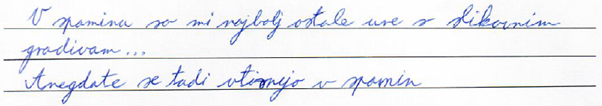 V spominu so mi najbolj ostale ure s slikovnim
gradivom...
Anegdote se tudi vtisnejo v spomin